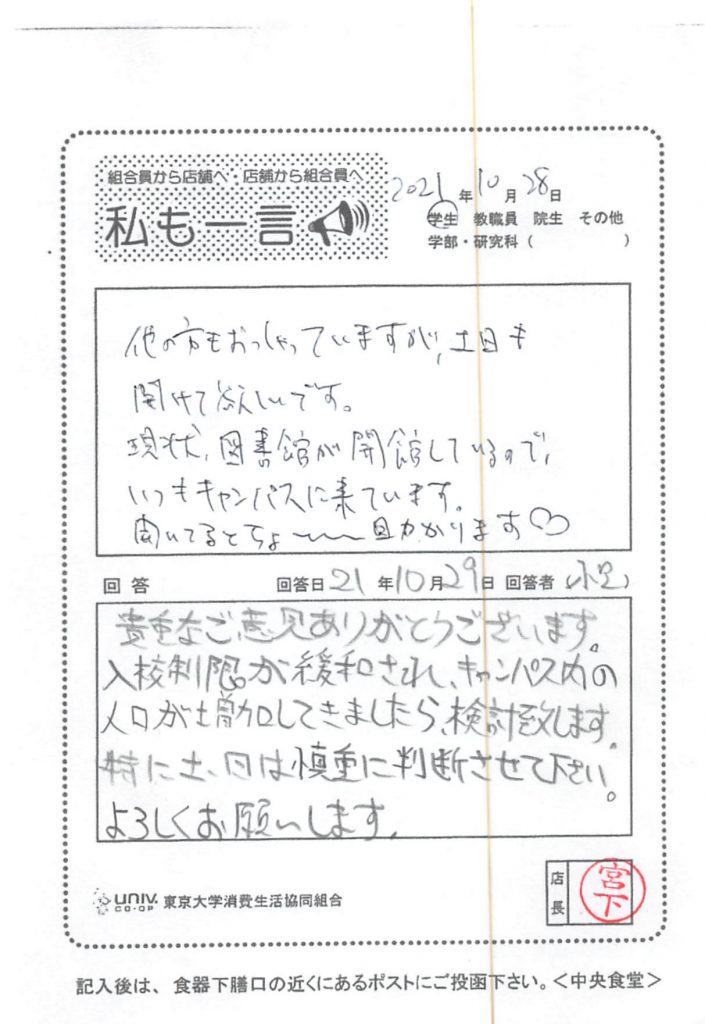 組合員から店舗へ・店舗から組合員へ
私も一言
2021年10月28日
学生 教職員 院生 その他
学部・研究科( )
他の方もおっしゃっていますが、土日も
開けて欲しいです。
現状、図書館が開館しているので、
いつもキャンパスに来ています。
開いてるとちょ〜〜助かります♡
回答 回答日21年10月29日 回答者
貴重なご意見ありがとうございます。
入校制限が緩和され、キャンパス内の
人口が増加してきましたら、検討致します。
特に土、日は慎重に判断させて下さい。
よろしくお願いします。
univ. CO-OP 東京大学消費生活協同組合
店長 宮下
記入後は、食器下膳口の近くにあるポストにご投函下さい。<中央食堂>